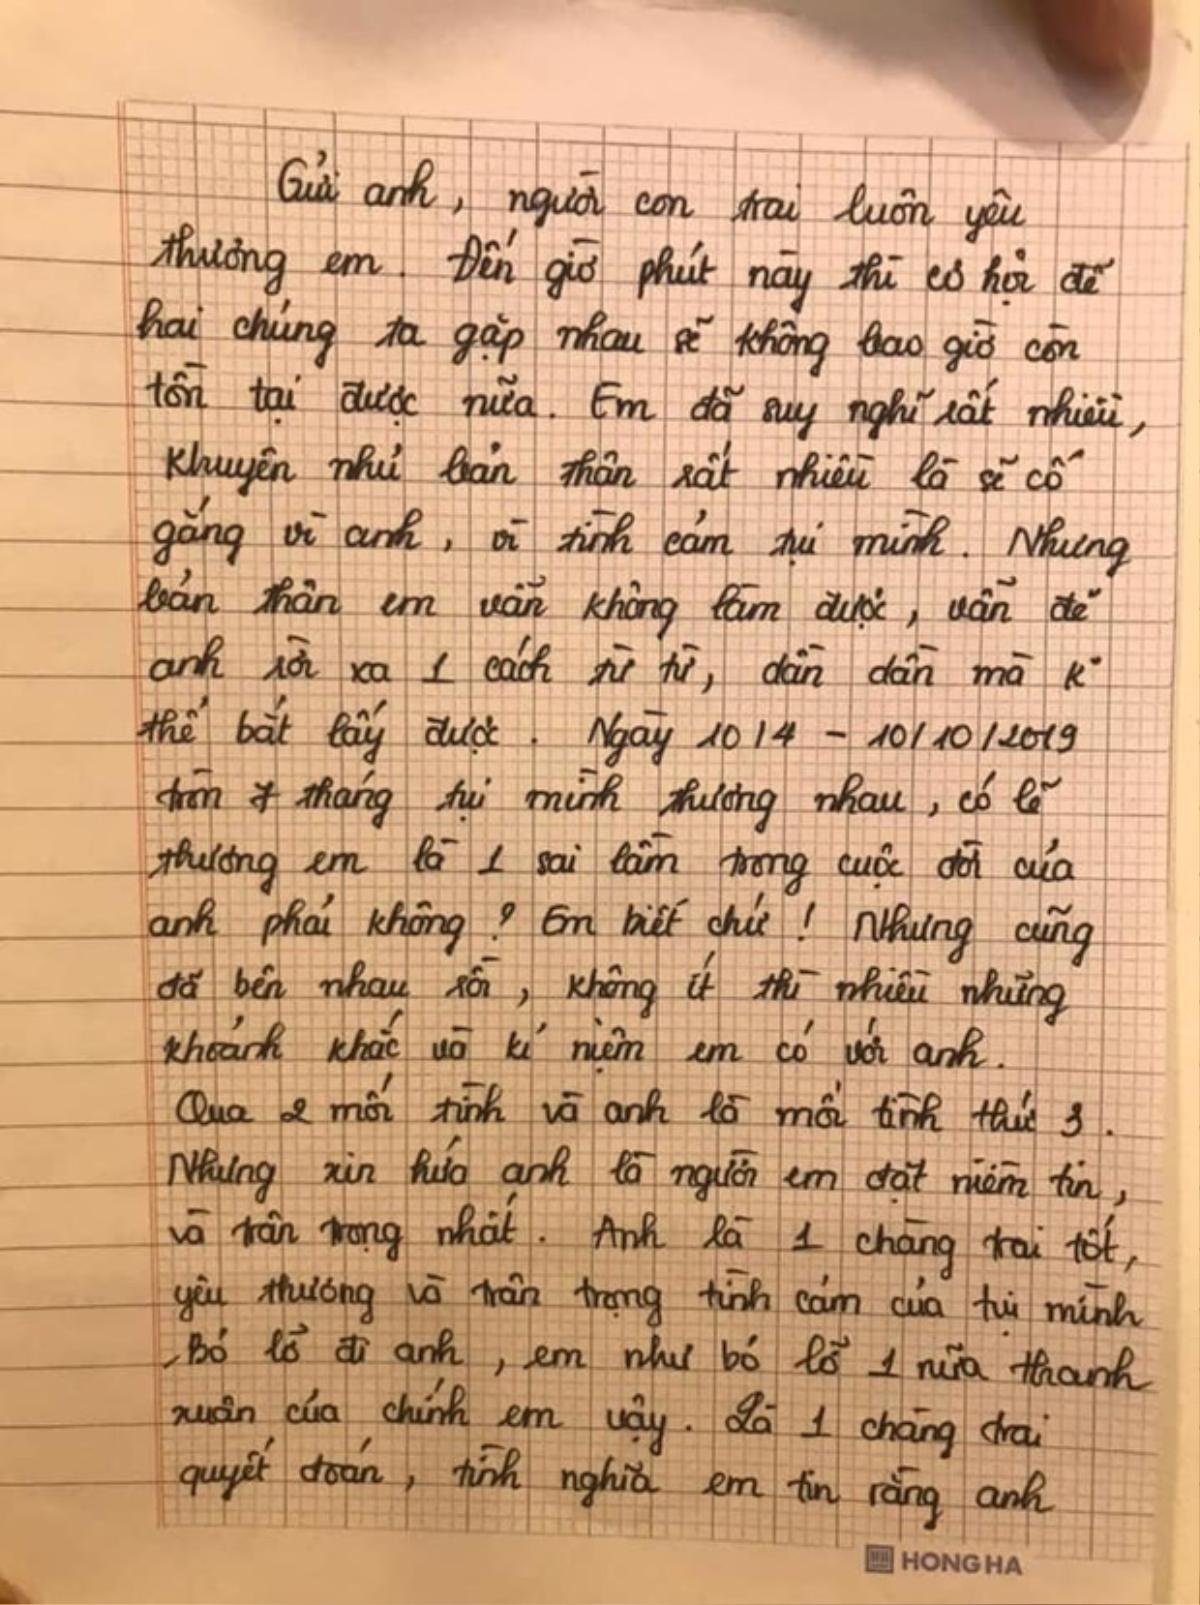 Gửi anh, người con trai luôn yêu
thương em. Đến giờ phút này thì cơ hội để
hai chúng ta gặp nhau sẽ không bao giờ còn
tồn tại được nữa. Em đã suy nghĩ rất nhiều,
khuyên nhủ bản thân rất nhiều là sẽ cố
gắng vì anh, vì tình cảm tụi mình. Nhưng
bản thân em vẫn không làm được, vẫn để
anh rời xa 1 cách từ từ, dần dần mà k
thể bắt lấy được. Ngày 10/4 - 10/10/2019
tròn 7 tháng tụi mình thương nhau, có lẽ
thương em là 1 sai lầm trong cuộc đời của
anh phải không? Em biết chứ! Nhưng cũng
đã bên nhau rồi, không ít thì nhiều những
khoảnh khắc và kỉ niệm em có với anh.
Qua 2 mối tình và anh là mối tình thứ 3.
Nhưng xin hứa anh là người em đặt niềm tin,
và trân trọng nhất. Anh là 1 chàng trai tốt,
yêu thương và trân trọng tình cảm của tụi mình
. Bỏ lỡ đi anh, em như bỏ lỡ 1 nữa thanh
xuân của chính em vậy. Là 1 chàng trai
quyết đoán, tình nghĩa em tin rằng anh
HONG HA